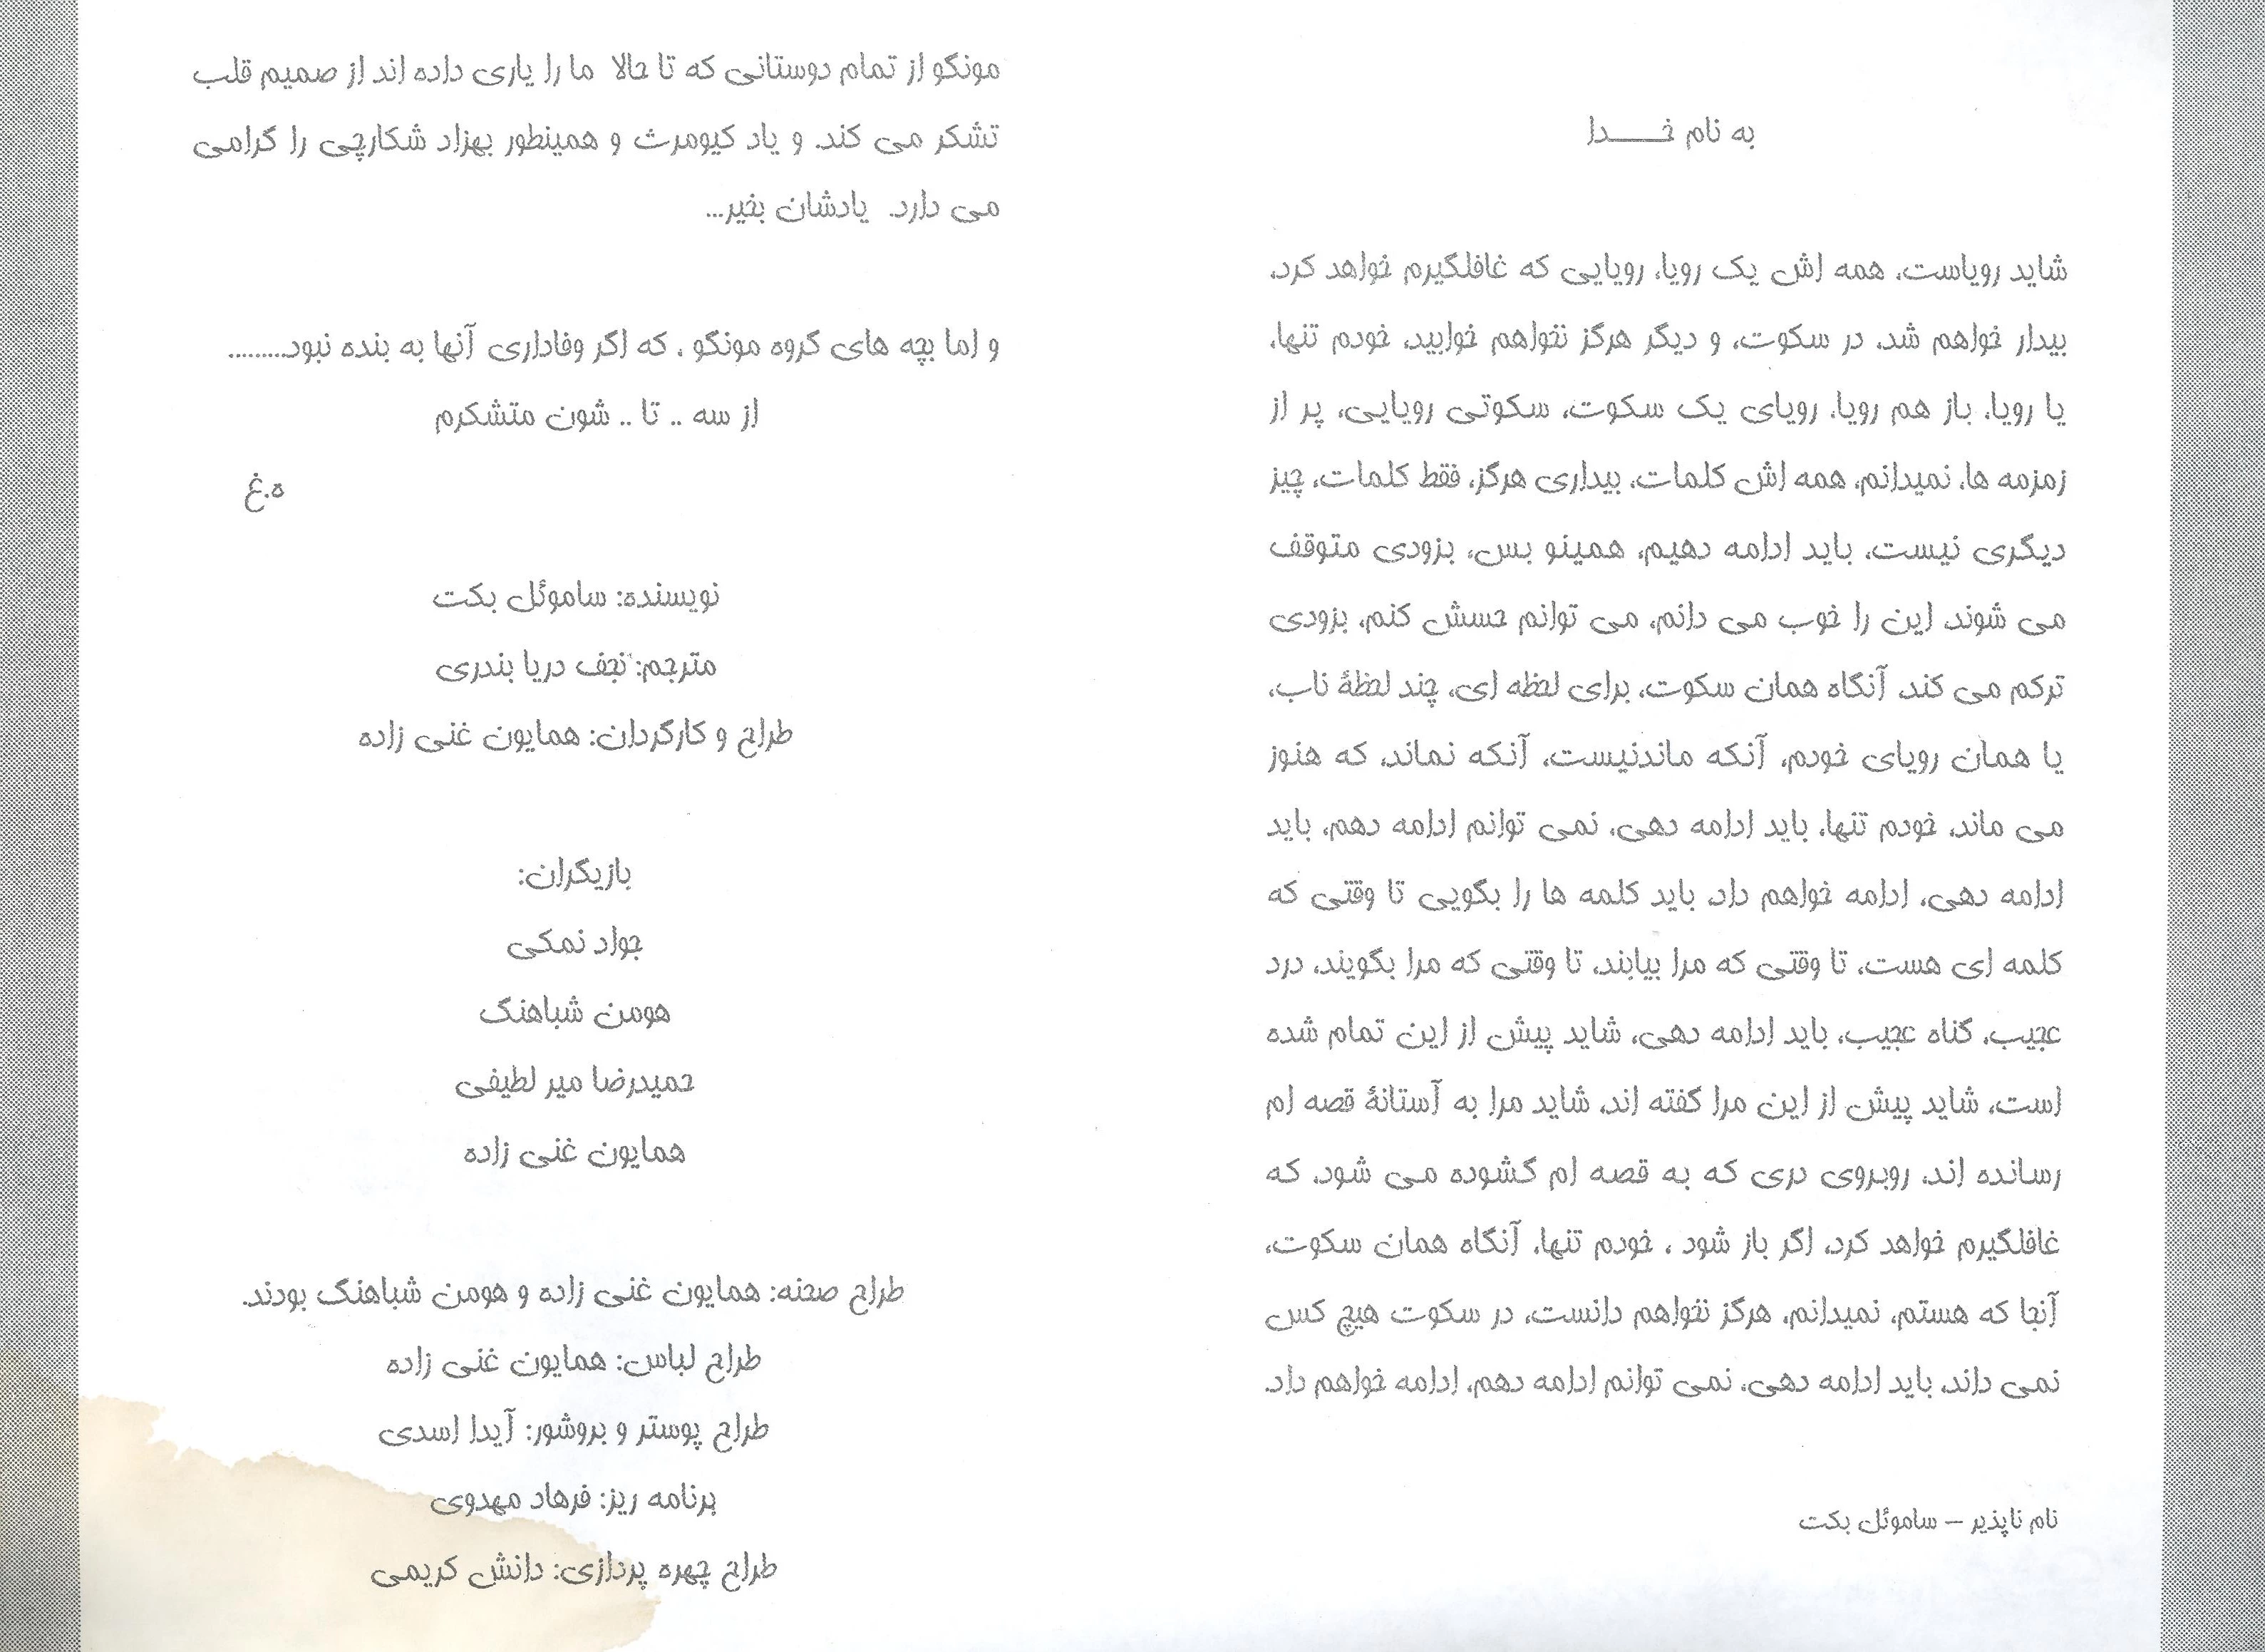 به نام خـــــدا
شاید رویاست، همه اش یک رویا، رویایی که غافلگیرم خواهد کرد،
بیدار خواهم شد، در سکوت، و دیگر هرگز نخواهم خوابید، خودم تنها،
یا رویا، باز هم رویا، رویای یک سکوت، سکوتی رویایی، پر از
زمزمه ها، نمیدانم، همه اش کلمات، بیداری هرگز، فقط کلمات، چیز
دیگری نیست، باید ادامه دهیم، همینو بس، بزودی متوقف
می شوند، این را خوب می دانم، می توانم حسش کنم، بزودی
ترکم می کند، آنگاه همان سکوت، برای لحظه ای، چند لحظهٔ ناب،
یا همان رویای خودم، آنکه ماندنیست، آنکه نماند، که هنوز
می ماند، خودم تنها، باید ادامه دهی، نمی توانم ادامه دهم، باید
ادامه دهی، ادامه خواهم داد، باید کلمه ها را بگویی تا وقتی که
کلمه ای هست، تا وقتی که مرا بیابند، تا وقتی که مرا بگویند، درد
عجیب، گناه عجیب، باید ادامه دهی، شاید پیش از این تمام شده
است، شاید پیش از این مرا گفته اند، شاید مرا به آستانهٔ قصه ام
رسانده اند، روبروی دری که به قصه ام گشوده می شود، که
غافلگیرم خواهد کرد، اگر باز شود ، خودم تنها، آنگاه همان سکوت،
آنجا که هستم، نمیدانم، هرگز نخواهم دانست، در سکوت هیچ کس
نمی داند، باید ادامه دهی، نمی توانم ادامه دهم، ادامه خواهم داد.
نام ناپذیر – ساموئل بکت
مونگو از تمام دوستانی که تا حالا ما را یاری داده اند از صمیم قلب
تشکر می کند. و یاد کیومرث و همینطور بهزاد شکارچی را گرامی
می دارد. یادشان بخیر...
و اما بچه های گروه مونگو ، که اگر وفاداری آنها به بنده نبود.........
از سه .. تا .. شون متشکرم
ه.غ
نویسنده: ساموئل بکت
مترجم: نجف دریا بندری
طراح و کارگردان: همایون غنی زاده
بازیگران:
جواد نمکی
هومن شباهنگ
حمیدرضا میر لطیفی
همایون غنی زاده
طراح صحنه: همایون غنی زاده و هومن شباهنگ بودند.
طراح لباس: همایون غنی زاده
طراح پوستر و بروشور: آیدا اسدی
برنامه ریز: فرهاد مهدوی
طراح چهره پردازی: دانش کریمی